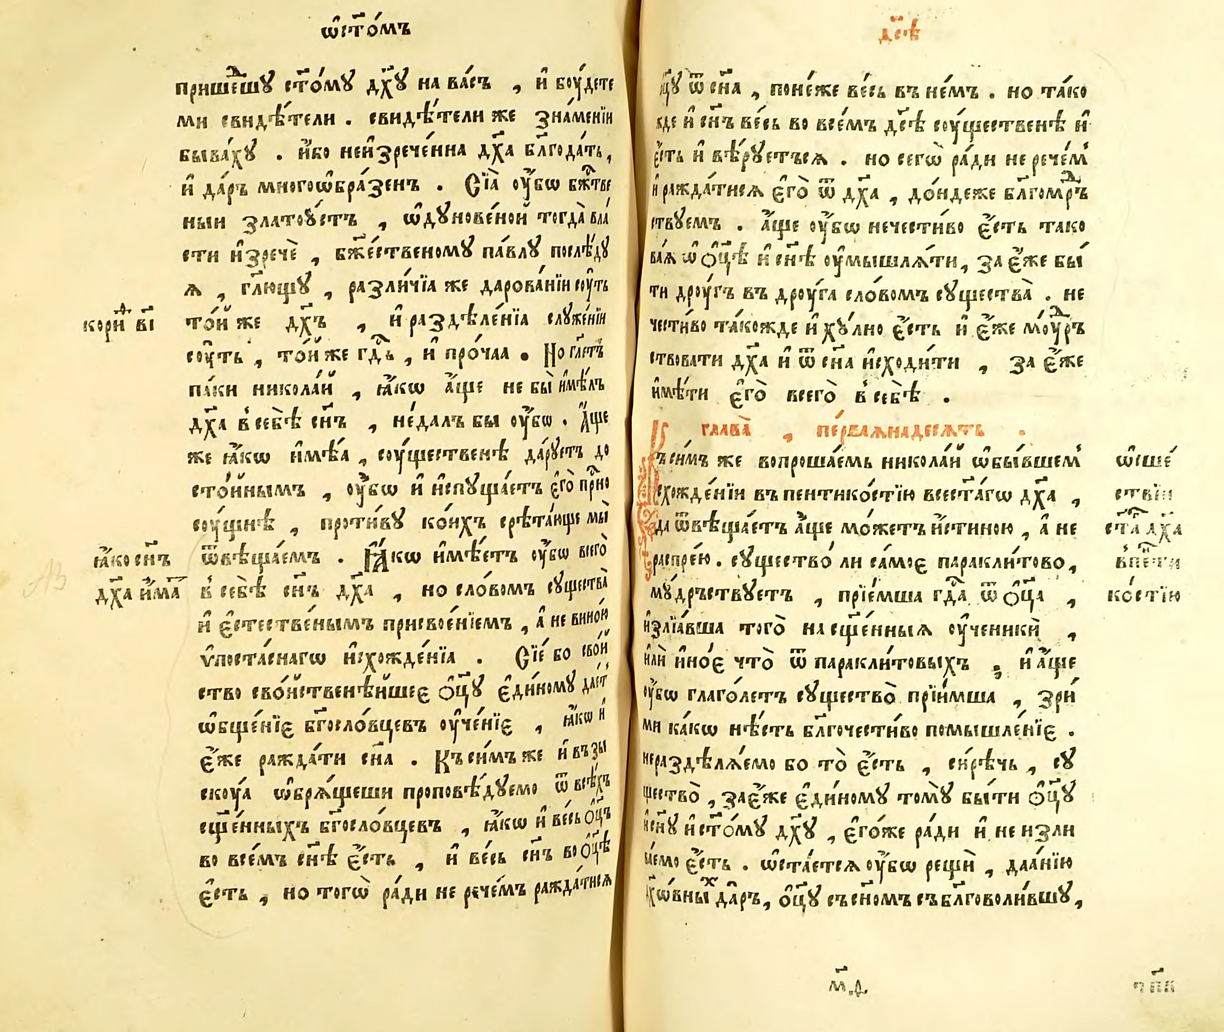 ѡ҆ст҃о́мъ
прише́шꙋ ст҃о́мꙋ дх҃ꙋ на ва́съ , и҆ боу́дете
ми свидѣ́тели . свидѣ́тели же зна́менїи
быва́хꙋ . и҆́бо неи҆зрече́нна дх҃а бл҃года́ть,
и҆ да́ръ многоѡ҆бра́зенъ . Сїа̀ оу҆́бѡ бж҃тве
ныи златоу́стъ , ѡ҆дꙋнове́ной тогда̀ вла́
сти и҆зречѐ , бж҃е́ственомꙋ па́влꙋ послѣ́дꙋ
ѧ , гл҃ющꙋ , разли́чїа же дарова́нїи соу́ть
кори҆ѳ в҃і
то́й же дх҃ъ , и҆ раздѣле́нїа слꙋже́нїи
соу́ть , то́й же гд҃ь , и҆ про́чаа . Но гл҃етъ
па́ки никола́й , ꙗ҆́кѡ а҆́ще не бы̀ и҆мѣ́лъ
дх҃а в҆ себѣ̀ сн҃ъ , не́далъ бы оу҆́бѡ . А҆́ще
же ꙗ҆́кѡ и҆мѣ́а , соу́щественѣ да́рꙋетъ до
сто́йнымъ , оу҆́бѡ и҆ и҆спꙋща́етъ є҆го̀ при́но
соу́щнѣ , проти́вꙋ ко́ихъ срѣта́юще мы̀
ꙗ҆́ко сн҃ъ
ѿвѣща́емъ . Ꙗ҆́кѡ и҆мѣ́етъ оу҆́бѡ всего̀
дх҃а и҆́ма
в҆ себѣ̀ сн҃ъ дх҃а , но сло́вомъ сꙋщества̀
и҆ є҆сте́ственымъ присвое́нїемъ , а҆ не вино́ю
ѵ҆поста́снагѡ и҆схожде́нїа . Сїе́ бо сво́й
ство сво́йственѣйшее ѻ҆ц҃ꙋ є҆ди́номꙋ дае́т
ѡ҆бще́нїе бг҃осло́вцевъ оу҆че́нїе , ꙗ҆́кѡ и҆
є҆́же ражда́ти сн҃а . Къ си́мъ же и҆ въ зы
скоуа̀ ѡ҆брѧ́щеши проповѣ́дꙋемо ѿ всѣ́хъ
сщ҃е́нныхъ бг҃осло́вцевъ , ꙗ҆́кѡ и҆ ве́сь ѻ҆ц҃ъ
во все́мъ сн҃ѣ є҆́сть , и҆ весь сн҃ъ во ѻ҆ц҃ѣ
є҆́сть , но тогѡ̀ ра́ди не рече́мъ ражда́тисѧ
дс҃ѣ
ѻ҆ц҃ꙋ ѿ сн҃а , поне́же ве́сь въ не́мъ . но та́ко
жде и҆ сн҃ъ ве́сь во все́мъ дс҃ѣ соу́щественѣ и҆
є҆́сть и҆ вѣ́рꙋетъсѧ . но сегѡ̀ ра́ди не рече́м
и҆ ражда́тисѧ є҆го̀ ѿ дх҃а , до́ндеже бл҃гомрⷣъ
ствꙋемъ . а҆́ще оу҆́бѡ нечести́во є҆́сть тако
ва́ѧ ѡ҆ ѻ҆ц҃ѣ и҆ сн҃ѣ оу҆мышлѧ́ти, за є҆́же бы́
ти дроу́гъ въ дроу́га сло́вомъ сꙋщества̀ . не
чести́во та́кожде и҆ хꙋ́лно є҆́сть и҆ є҆́же моу́дръ
ствовати дх҃а и҆ ѿ сн҃а и҆сходи́ти , за є҆́же
и҆мѣ́ти є҆го̀ всего̀ в҆ себѣ̀ .
глава̀ , пе́рваѧнадесѧть .
Къ си́мъ же вопроша́емъ никола́й ѡ҆бы́вшем
схожде́нїи въ пентико́стїю всест҃а́гѡ дх҃а ,
да ѿвѣща́етъ а҆́ще мо́жетъ и҆́стиною, а҆ не
распре́ю . сꙋщество́ ли само́е паракли́тово,
мꙋ́дръствꙋетъ , прїе́мша гд҃а ѿ ѻ҆ц҃а ,
и҆злїа́вша того̀ на сщ҃е́нныѧ оу҆ченикѝ ,
и҆лѝ и҆но́е что̀ ѿ паракли́товыхъ , и҆ а҆́ще
оу҆́бѡ глаго́летъ сꙋщество̀ прїи́мша , зри́
ми ка́кѡ нѣ́сть бл҃гочести́во помышле́нїе .
нераздѣлѧ́емо бо то̀ є҆́сть , си́рѣчь , сꙋ
щество̀ , за є҆́же є҆ди́номꙋ томꙋ̀ бы́ти ѻ҆ц҃ꙋ
и҆ сн҃ꙋ и҆ ст҃о́мꙋ дх҃ꙋ , є҆го́же ра́ди и҆ не изли
ва́емо є҆́сть . ѡ҆ста́етсѧ оу҆́бѡ рещѝ , даа́нїю
дх҃ѡ́вных да́ръ, ѻ҆ц҃ꙋ съ сн҃омъ съ бл҃говоли́вшꙋ,
ѡ҆сше́
ствїи
ст҃а дх҃а
в҆пѣнти
ко́стїю
м҃д